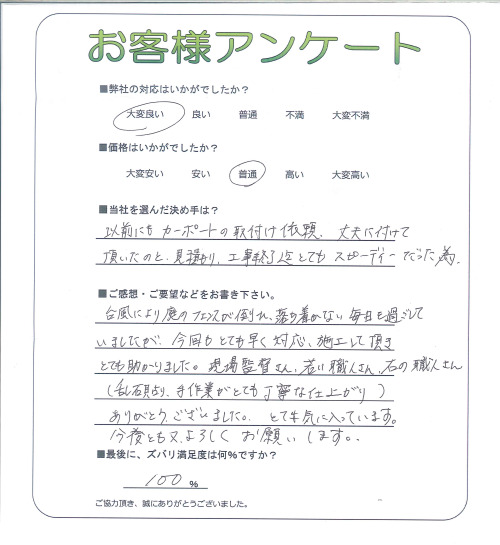 お客様アンケート
■弊社の対応はいかがでしたか？
大変良い 良い 普通 不満 大変不満
■価格はいかがでしたか？
大変安い 安い 普通 高い 大変高い
■当社を選んだ決め手は？
以前にもカーポートの取付け依頼、丈夫に付けて
頂いたのと、見積もり、工事終了迄とてもスピーディーだった為。
■ご感想・ご要望などをお書き下さい。
台風により庭のフェンスが倒れ、落ち着かない毎日を過ごして
いましたが、今回もとても早く対応、施工して頂き
とても助かりました。現場監督さん、若い職人さん、石の職人さん
(乱石貝より、手作業がとても丁寧な仕上がり)
ありがとうございました。とても気に入っています。
今後とも又、よろしくお願いします。
■最後に、ズバリ満足度は何%ですか？
100 %
ご協力頂き、誠にありがとうございました。